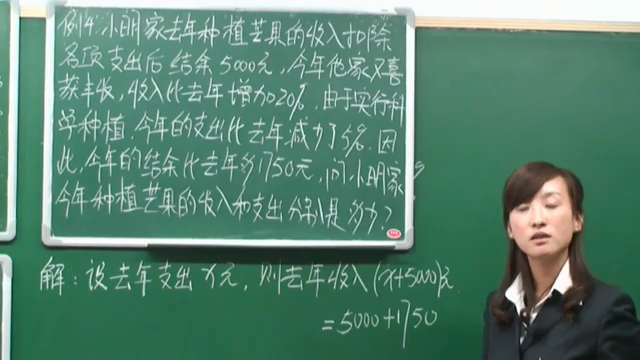 例4.小明家去年种植芒果的收入扣除
各项支出后结余5000元,今年他家又喜
获丰收,收入比去年增加20%,由于实行科
学种植,今年的支出比去年减少了5%,因
此,今年的结余比去年多1750元,问小明家
今年种植芒果的收入和支出分别是多少?
解:设去年支出x元,则去年收入(x+5000)元
=5000+1750